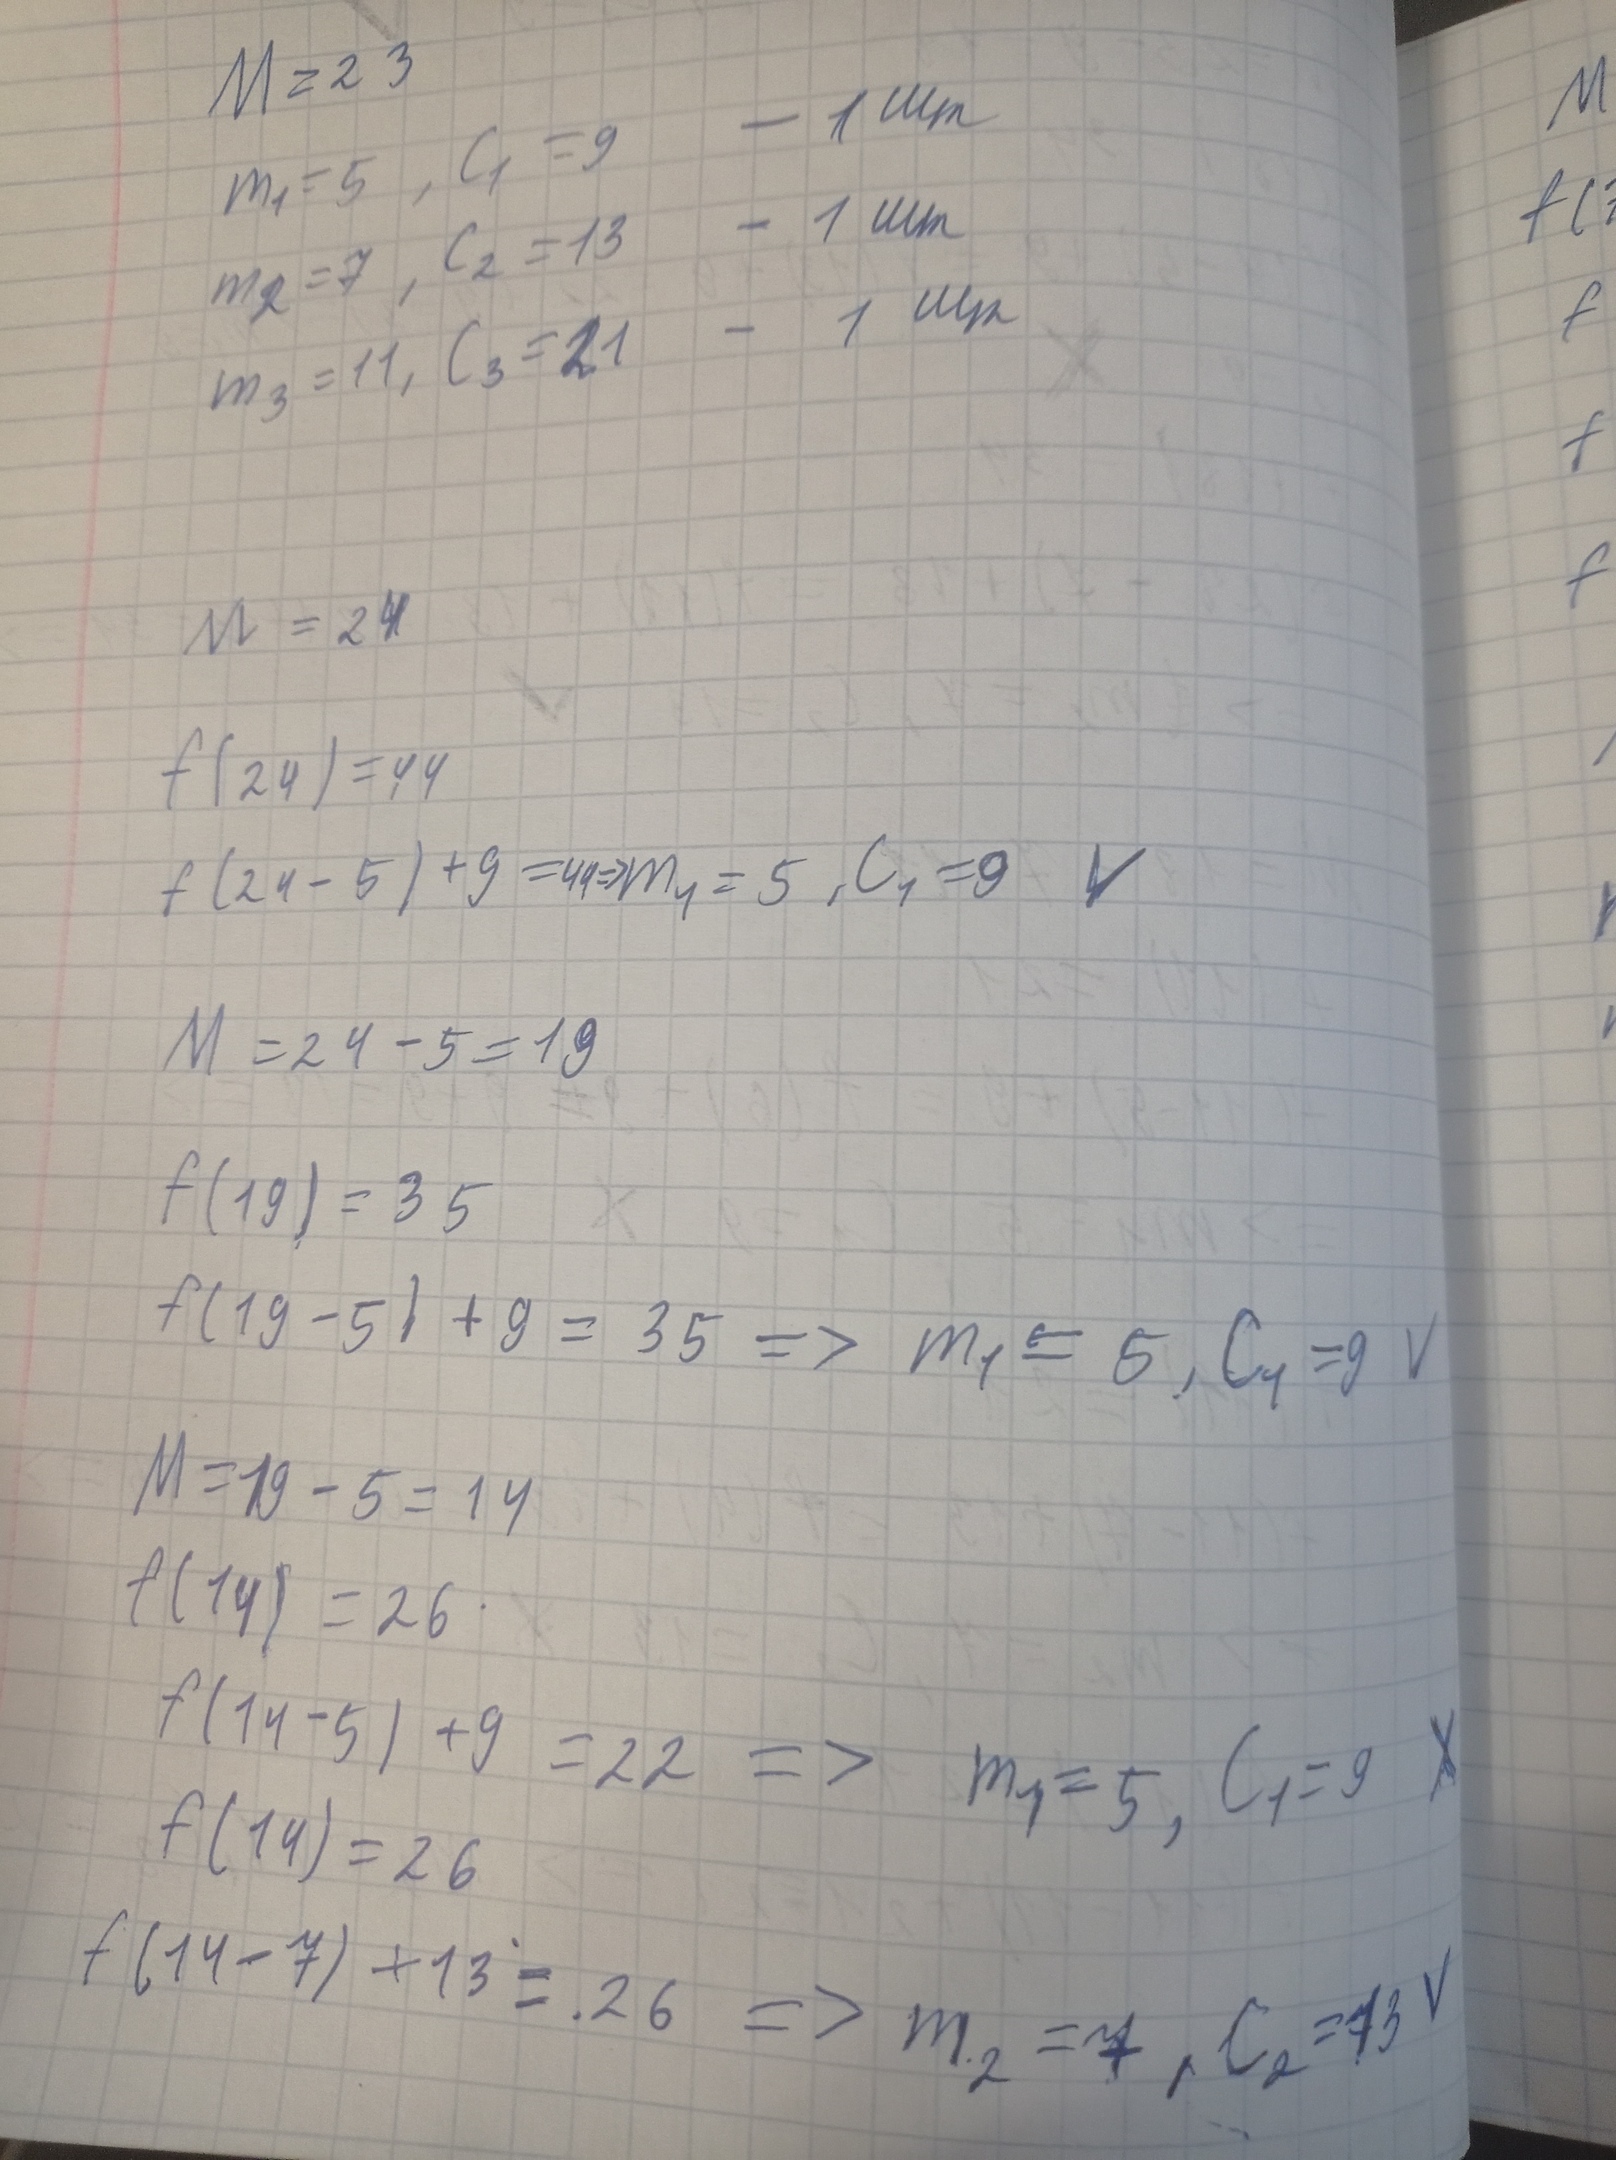 M = 23
m₁ = 5, C₁ = 9 – 1 шт
m₂ = 7, C₂ = 13 – 1 шт
m₃ = 11, C₃ = 21 – 1 шт
M = 24
f(24) = 44
f(24 - 5) + 9 = 44 => m₁ = 5, C₁ = 9 V
M = 24 - 5 = 19
f(19) = 35
f(19 - 5) + 9 = 35 => m₁ = 5, C₁ = 9 V
M = 19 - 5 = 14
f(14) = 26
f(14 - 5) + 9 = 22 => m₁ = 5, C₁ = 9 X
f(14) = 26
f(14 - 7) + 13 = 26 => m₂ = 7, C₂ = 13 V
M
f(7
f
f
f